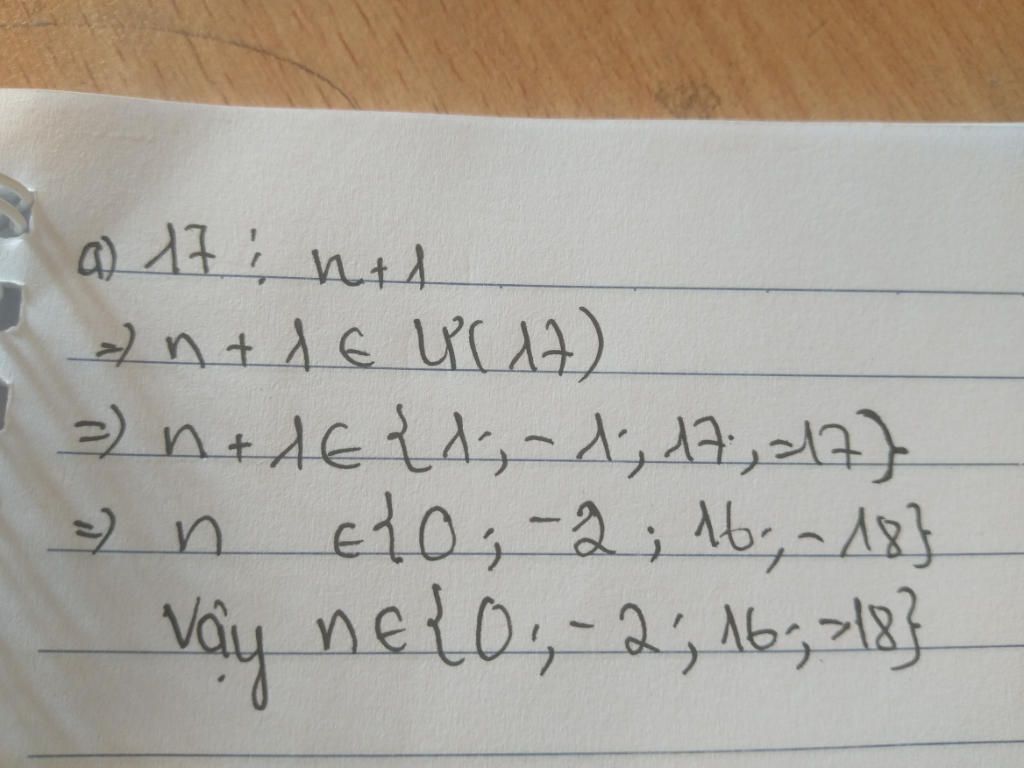 a) 17 ⋮ n + 1
=> n + 1 ∈ Ư(17)
=> n + 1 ∈ {1; -1; 17; -17}
=> n ∈ {0; -2; 16; -18}
Vậy n ∈ {0; -2; 16; -18}